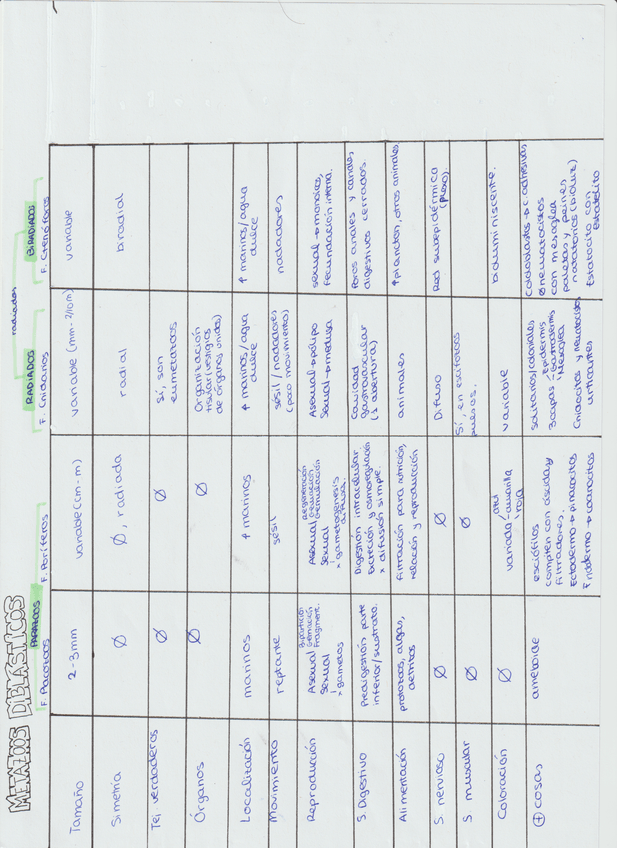 METAZOOS DIBLÁSTICOS
radiados
PARAZOOS
RADIADOS
BIRADIADOS
F. Placozoos
F. Poríferos
F. Cnidarios
F. Ctenóforos
Tamaño
2-3mm
variable (cm-m)
variable (mm-2/10m)
variable
Simetría
Ø
Ø, radiada
radial
biradial
Tej. verdaderos
Ø
Ø
Sí, son
eumetazoos
Órganos
Ø
Ø
Organización
tisular (vestigios
de órganos unidos)
Localización
marinos
↑ marinos
↑ marinos/agua
dulce
↑ marinos/agua
dulce
Movimiento
reptante
sésil
sésil / nadadores
(poco movimiento)
nadadores
Reproducción
Asexual
Bipartición
Gemación
Fragment.
Sexual
x gametos
Asexual
Regeneración
Gemación
Gemulación
Sexual
x gametogénesis
difusa
Asexual → pólipo
Sexual → medusa
sexual → monoicos,
fecundación interna.
S. Digestivo
Predigestión parte
inferior/sustrato.
Digestión intracelular
Excreción y osmoregulación
x difusión simple.
Cavidad
gastrovascular
(1 abertura)
Poros anales y canales
digestivos cerrados.
Alimentación
protozoos, algas,
detritos
Filtración para nutrición,
relación y reproducción
animales
↑ plancton, otros animales
S. nervioso
Ø
Ø
Difuso
Red subepidérmica
(plexo).
S muscular
Ø
Ø
Sí, en escifozoos
Coloración
Ø
variada
azul
amarilla
roja
variable
bioluminiscente.
⊕ cosas
ameboide
esciófilos
compiten con ascidias y
filtradores.
Ectodermo → pinacocitos
Endodermo → coanocitos
solitarios/coloniales
3 capas
Epidermis
Gastrodermis
Mesoglea
Cnidocitos y nematocistos
urticantes
Coloblastos → c. adhesivas
Ø nematocistos
con mesoglea
paletas y peines
natatorios (bioluz)
Estatocisto con
Estatolito